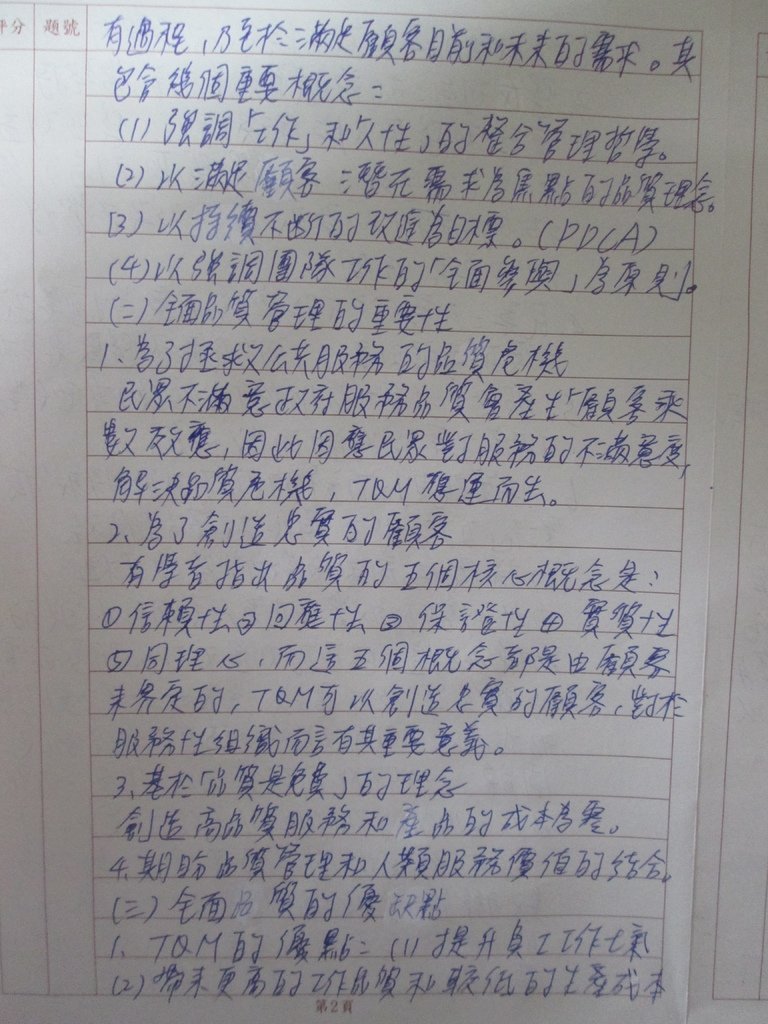 評分 題號
有過程,乃至於滿足顧客目前和未來的需求。其
包含幾個重要概念:
(1) 強調「工作」和「人性」的整合管理哲學。
(2) 以滿足顧客潛在需求為焦點的品質理念。
(3) 以持續不斷的改進為目標。(PDCA)
(4) 以強調團隊工作的「全面參與」為原則。
(二) 全面品質管理的重要性
1、為了拯救公共服務的品質危機
民眾不滿意政府服務品質會產生「顧客乘
數效應,因此因應民眾對服務的不滿意度,
解決品質危機,TQM應運而生。
2、為了創造忠實的顧客
有學者指出品質的五個核心概念是:
①信賴性②回應性③保證性④實質性
⑤同理心,而這五個概念都是由顧客
來界定的,TQM可以創造忠實的顧客,對於
服務性組織而言有其重要意義。
3、基於「品質是免費」的理念
創造高品質服務和產品的成本為零。
4、期盼品質管理和人類服務價值的結合。
(三) 全面品質的優缺點
1、TQM的優點:(1) 提升員工工作士氣
(2) 帶來更高的工作品質和較低的生產成本
第2頁